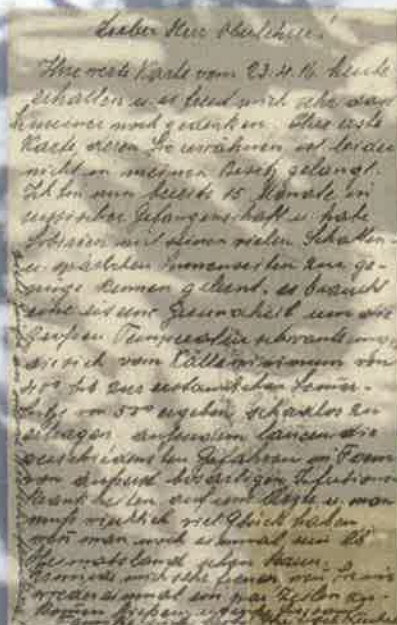 Lieber Herr Oberlehrer!
Ihre werte Karte vom 23.4.16 heute
erhalten u. es freut mich sehr dass
Sie meiner noch gedenken. Ihre erste
Karte deren Sie erwähnen ist leider
nicht in meinen Besitz gelangt.
Ich bin nun bereits 15 Monate in
russischer Gefangenschaft u. habe
Sibirien mit seinen vielen Schatten-
u. spärlichen Sonnenseiten zur ge-
nüge kennen gelernt. es braucht
eine eiserne Gesundheit um die
großen Temperaturschwankungen
die sich vom Kälteminimum von
45° bis zur Sommer-
hitze von 50° ergeben schadlos zu
ertragen, außerdem lauern die
verschiedensten Gefahren in Form
von äußerst bösartigen Infektions-
krankheiten auf uns u. man
muß wirklich viel Glück haben
wenn man noch einmal sein lb
Heimatsland sehen kann.
mich sehr freuen von Ihnen
wieder einmal ein paar Zeilen